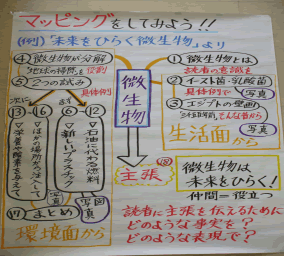 マッピングをしてみよう!!
(例)「未来をひらく微生物」より
④微生物が分解
地球の掃除を役割
⑤2つの試み
具体例
次に
まず
⑬-⑯
⑥-⑫
▽ほかの場所から注入して
▽栄養や酸素を与えて
新しいプラスチック
石油に代わる燃料
写真
写真
図
⑰まとめ
環境面から
微生物
主張
⑱
①微生物とは
読者の意識を
②イースト菌・乳酸菌
具体例で
写真
③エジプトの壁画
そんな昔から
写真
生活面から
微生物は
未来をひらく!
仲間=役立つ
読者に主張を伝えるために
どのような事実を?
どのような表現で?